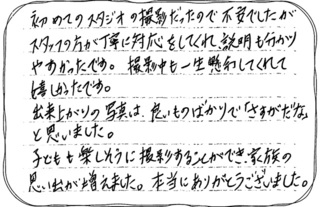 初めてのスタジオの撮影だったので不安でしたが
スタッフの方が丁寧に対応をしてくれ、説明も分かり
やすかったです。撮影中も一生懸命してくれて
嬉しかったです。
出来上がりの写真は、良いものばかりで「さすがだな」
と思いました。
子どもも楽しそうに撮影することができ、家族の
思い出が増えました。本当にありがとうございました。